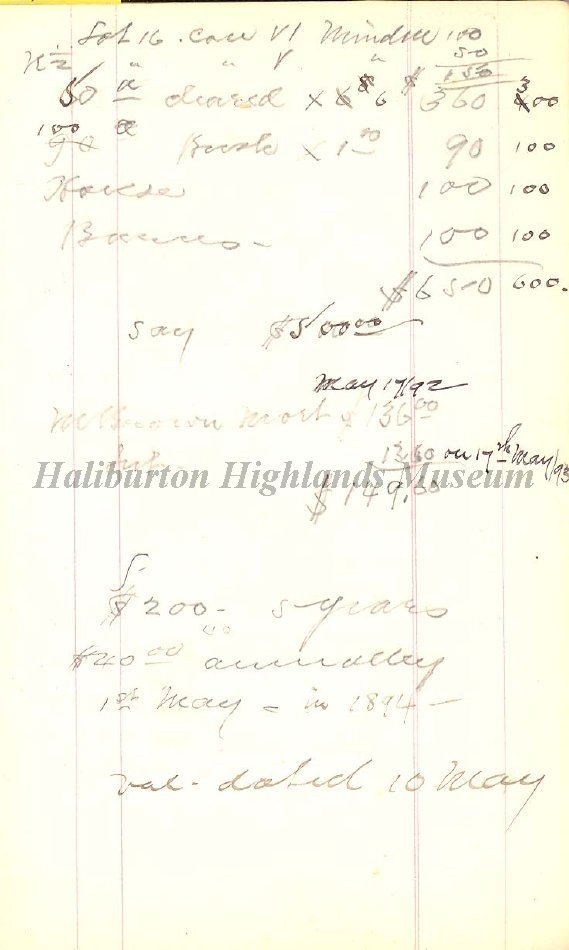 Lot 16 . Con VI Minden 100
N 1/2 " " V " 50
150
50 a cleared x $6 $360 300
100 a
90 Bush x 1 00 90 100
House 100 100
Barns - 100 100
$650 600.
say $500 00
May 17/92
Mort $ 136 00
Int 13.60 on 17th May/93
Haliburton Highlands Museum
$ 149.60
$200 - 5 years
$40 00 annually
1st May - in 1894 -
val - dated 10 May